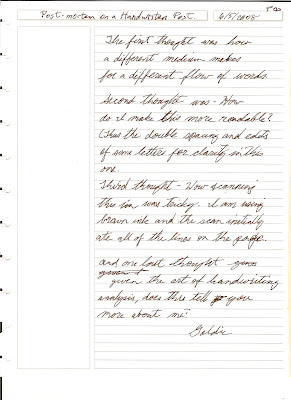 Post-mortem on a Handwritten Post. 6/5/2008
The first thought was how
a different medium makes
for a different flow of words.
Second thought was - How
do I make this more readable?
Thus the double spacing and edits
of some letters for clarity in this
one.
Third thought - Wow scanning
this in was tricky. I am using
brown ink and the scan initially
ate all of the lines on the page.
and one last thought -
given the art of handwriting
analysis, does this tell you
more about me?
Goldie